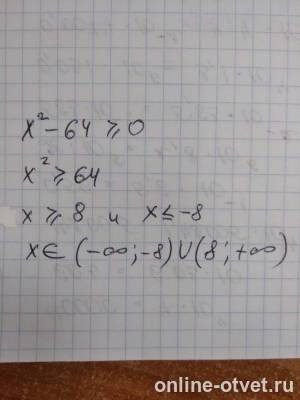 x² - 64 ⩾ 0
x² ⩾ 64
x ⩾ 8 и x ≤ -8
x ∈ (-∞; -8) ∪ (8; +∞)
online-otvet.ru